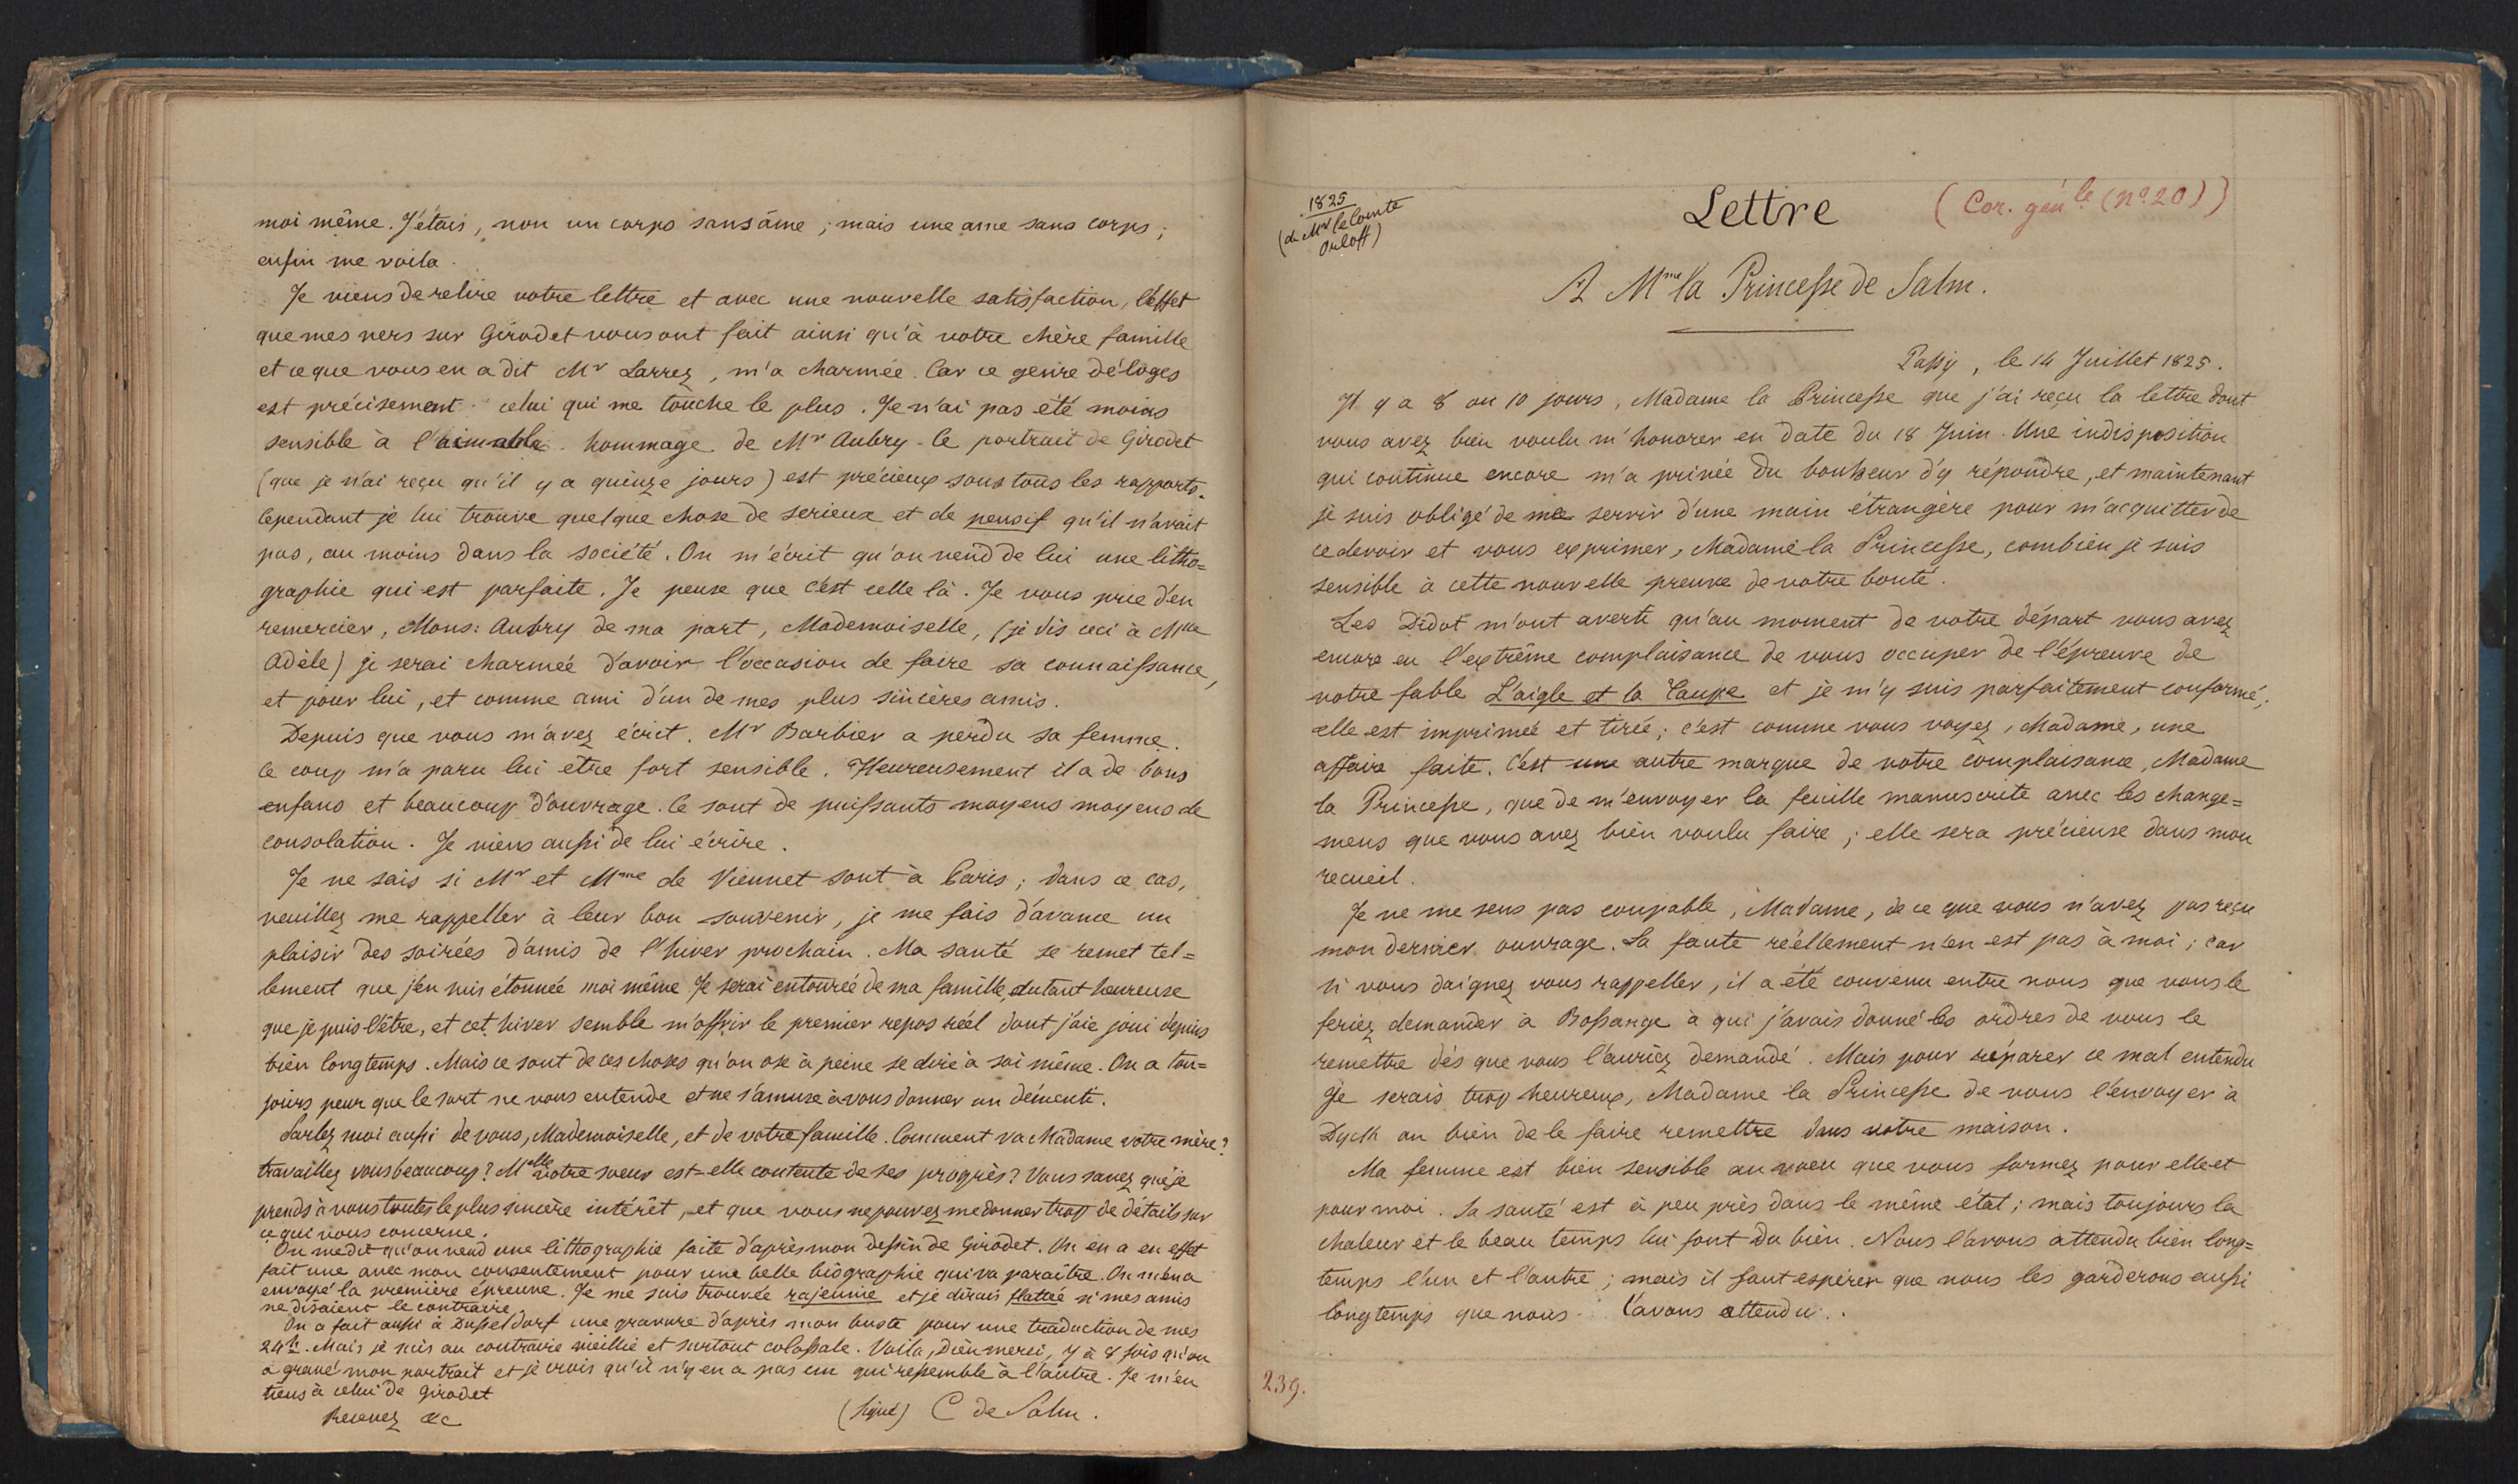 moi même. J'étais, non un corps sans âme ; mais une ame sans corps ;
enfin me voila.
Je viens de relire votre lettre et avec une nouvelle satisfaction, l'effet
que mes vers sur Girodet vous ont fait ainsi qu'à votre chère famille
et ce que vous en a dit Mr Larrey, m'a charmée. Car ce genre d'éloges
est précisement celui qui me touche le plus. Je n'ai pas été moins
sensible à l'aimable hommage de Mr Aubry - le portrait de Girodet
(que je n'ai reçu qu'il y a quinze jours) est précieux sous tous les rapports.
Cependant je lui trouve quelque chose de serieux et de pensif qu'il n'avait
pas, au moins dans la société. On m'écrit qu'on vend de lui une litho=
graphie qui est parfaite. Je pense que c'est celle là. Je vous prie d'en
remercier, Mons: Aubry de ma part, Mademoiselle, (je dis ceci à Mlle
Adèle) je serai charmée d'avoir l'occasion de faire sa connaissance,
et pour lui, et comme ami d'un de mes plus sincères amis.
Depuis que vous m'avez écrit. Mr Barbier a perdu sa femme.
Ce coup m'a paru lui etre fort sensible. Heureusement il a de bons
enfans et beaucoup d'ouvrage. Ce sont de puissants moyens moyens de
consolation. Je viens aussi de lui écrire.
Je ne sais si Mr et Mme de Viennet sont à Paris ; dans ce cas,
veuillez me rappeller à leur bon souvenir, je me fais d'avance un
plaisir des soirées d'amis de l'hiver prochain. Ma santé se remet tel=
lement que j'en suis étonnée moi même Je serai entourée de ma famille, autant heureuse
que je puis l'être, et cet hiver semble m'offrir le premier repos réel dont j'aie joui depuis
bien longtemps. Mais ce sont de ces choses qu'on ose à peine se dire à soi même. On a tou=
jours peur que le sort ne vous entende et ne s'amuse à vous donner un démenti.
Parlez moi aussi de vous, Mademoiselle, et de votre famille. Comment va Madame votre mère ?
travaillez vous beaucoup ? Melle votre soeur est-elle contente de ses progrès ? Vous savez que je
prends à vous toutes le plus sincère intérêt, et que vous ne pouvez me donner trop de détails sur
ce qui vous concerne.
On me dit qu'on vend une lithographie faite d'après mon dessin de Girodet. On en a en effet
fait une avec mon consentement pour une belle biographie qui va paraître. On m'en a
envoyé la première épreuve. Je me suis trouvée rajeunie et je dirais flattée si mes amis
ne disaient le contraire.
On a fait aussi à Dusseldorf une gravure d'après mon buste pour une traduction de mes
24h. Mais je suis au contraire vieillie et surtout colossale. Voila, Dieu merci, 7 à 8 fois qu'on
a gravé mon portrait et je crois qu'il n'y en a pas un qui ressemble à l'autre. Je m'en
tiens à celui de Girodet
Recevez &c
(signé) C de Salm.
1825
(de Mr le Comte
Orloff)
Lettre
(Cor. génle (no 20))
A Mme la Princesse de Salm.
Passy, le 14 Juillet 1825.
Il y a 8 ou 10 jours, Madame la Princesse que j'ai reçu la lettre dont
vous avez bien voulu m'honorer en date du 18 Juin. Une indisposition
qui continue encore m'a privée du bonheur d'y répondre, et maintenant
je suis obligé de me servir d'une main étrangère pour m'acquitter de
ce devoir et vous exprimer, Madame la Princesse, combien je suis
sensible à cette nouvelle preuve de votre bonté.
Les Didot m'ont averti qu'au moment de votre départ vous avez
encore eu l'extrême complaisance de vous occuper de l'épreuve de
votre fable L'aigle et la Taupe et je m'y suis parfaitement conformé ;
elle est imprimée et tirée ; c'est comme vous voyez, Madame, une
affaire faite. C'est une autre marque de votre complaisance, Madame
la Princesse, que de m'envoyer la feuille manuscrite avec les change=
mens que vous avez bien voulu faire ; elle sera précieuse dans mon
recueil.
Je ne me sens pas coupable, Madame, de ce que vous n'avez pas reçu
mon dernier ouvrage. La faute réellement n'en est pas à moi ; car
si vous daignez vous rappeller, il a été convenu entre nous que vous le
feriez demander à Bossange à qui j'avais donné les ordres de vous le
remettre dés que vous l'auriez demandé. Mais pour réparer ce mal entendu
je serais trop heureux, Madame la Princesse de vous l'envoyer à
Dyck ou bien de le faire remettre dans votre maison.
Ma femme est bien sensible au voeu que vous formez pour elle et
pour moi. Sa santé est à peu près dans le même état ; mais toujours la
chaleur et le beau temps lui font du bien. Nous l'avons attendu bien long=
temps l'un et l'autre ; mais il faut espérer que nous les garderons aussi
longtemps que nous l'avons attendu.
239.